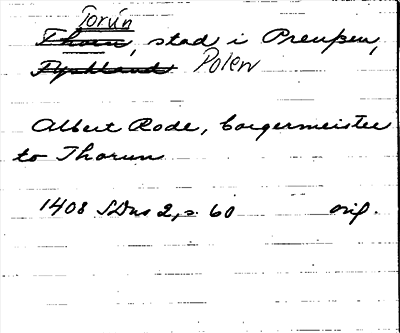 Torún
Thorn, stad i Preussen,
Tyskland Polen
Albert Rode, borgermeister
to Thorun
1408 SDns 2, s. 60 orig.